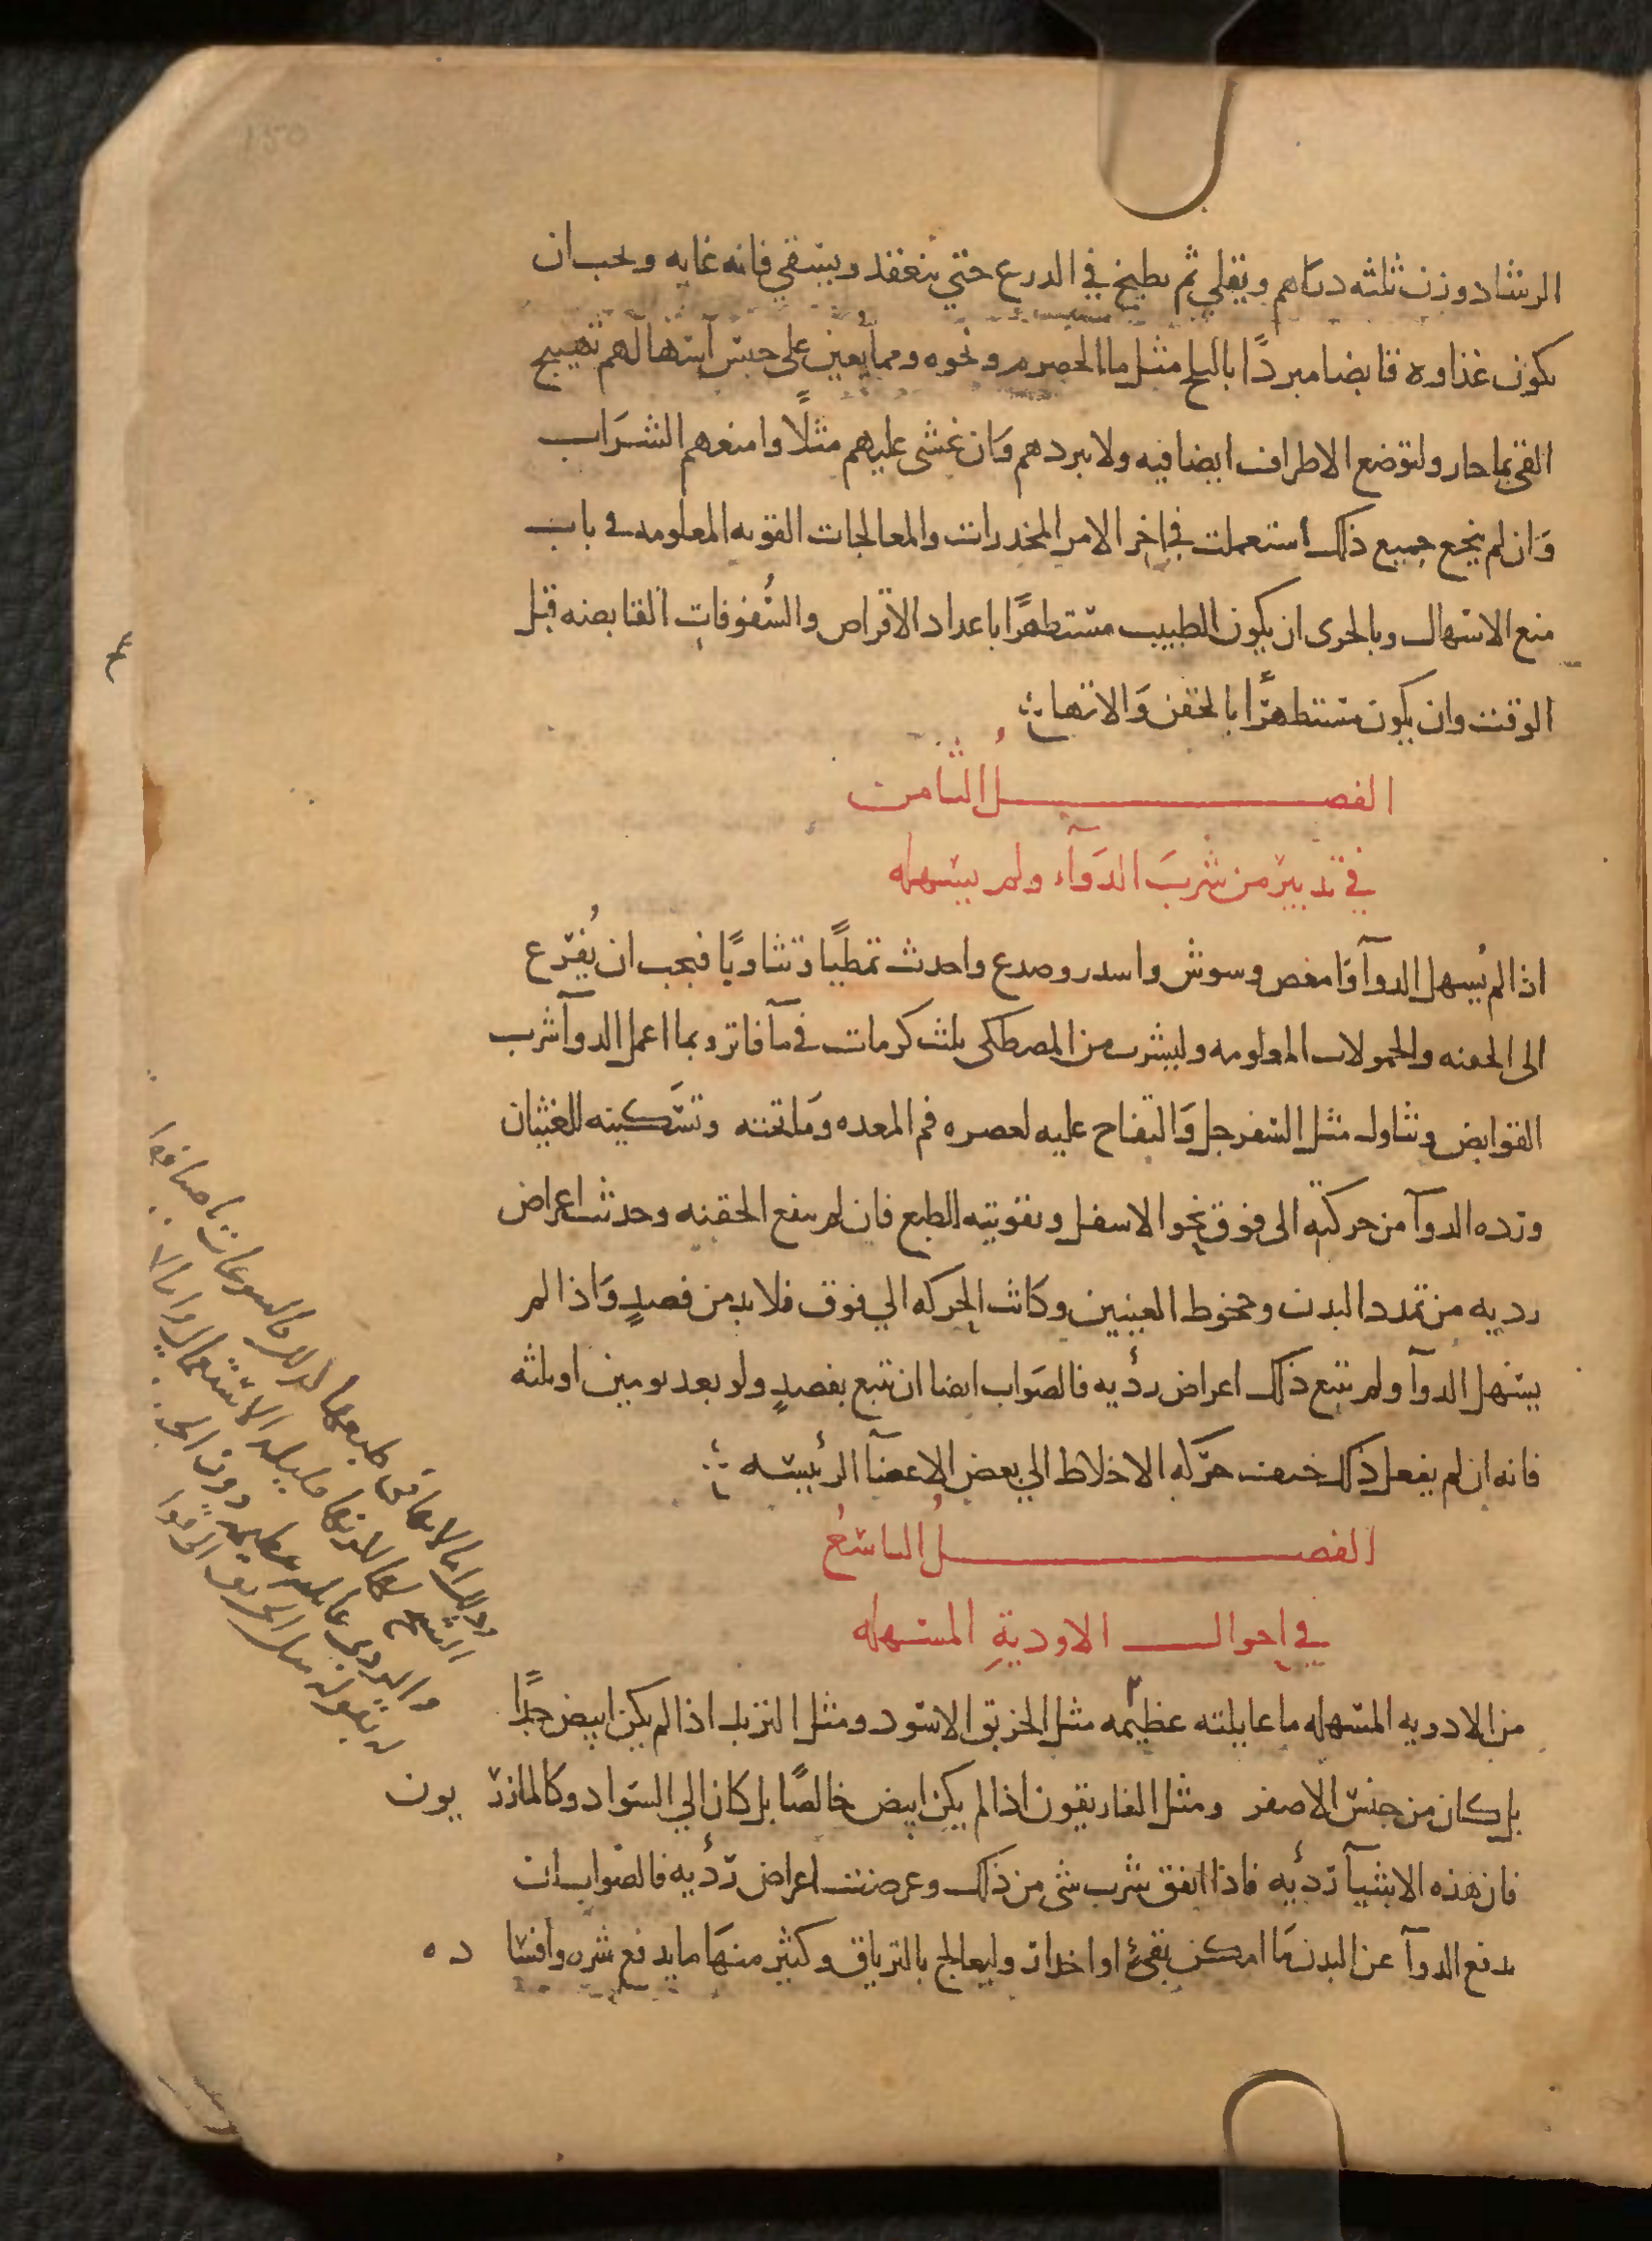 الرشاد وزن ثلثه دراهم ويقلي ثم يطبخ في الدرع حتي ينعقد ويسقي فانه غايه ويجب ان
يكون غذاوه قابضا مبردًا بالثلج مثل ما الحصرم ونحوه ومما يعين على حبس اسهالهم تهييج
القي بما حار ولتوضع الاطراف ايضا فيه ولا يبردهم وان غشي عليهم مثلًا وامنعهم الشراب
وان لم ينجع جميع ذلك استعملت في اخر الامر المخدرات والمعالجات القويه المعلومه في باب
منع الاسهال وبالحرى ان يكون الطبيب مستظهرًا باعداد الاقراص والسُّفوفات القابضه قبل
الوقت وان يكون مستظهرًا بالحقن والاتها
الفصل الثامن
في تدبير من شرب الدوآء ولم يسهله
اذا لم يُسهل الدوآ وامغص وسوش واسدر وصدع واحدث تمطيًا وتثاويًا فيجب ان يُفزع
الى الحقنه والحمولات المعلومه وليشرب من المصطكى ثلث كرمات في مآ فاتر وبما اعمل الدوآ شرب
القوابض وتناول مثل السفرجل والتفاح عليه لعصره فم المعده وما تحته وتسكينه للغثيان
ورده الدوآ من حركته الى فوق نحو الاسفل وتقويته الطبع فان لم ينفع الحقنه وحدث اعراض
رديه من تمدد البدن وجحوظ العينين وكانت الحركه الي فوق فلا بد من فصدٍ واذا لم
يسهل الدوآ ولم يتبع ذلك اعراض رديه فالصواب ايضا ان تتبع بفصدٍ ولو بعد يومين او ثلثه
فانه ان لم يفعل ذلك خيفت حركه الاخلاط الي بعض الاعضآ الرئيسه
الفصل التاسع
في احوال الاودية المسهله
من الادويه المسهله ما عايلته عظيمه مثل الخربق الاسود ومثل التربد اذا لم يكن ابيض جيدًا
بل كان من جنس الاصفر ومثل الغاريقون اذا لم يكن ابيض خالصًا بل كان الي السواد وكالمازريون
فان هذه الاشيآ رديه فاذا اتفق شرب شي من ذلك وعرضت اعراض رديه فالصواب ان
يدفع الدوآ عن البدن ما امكن بقيء او احدار وليعالج بالترياق وكثير منها ما يدفع شره وافساده